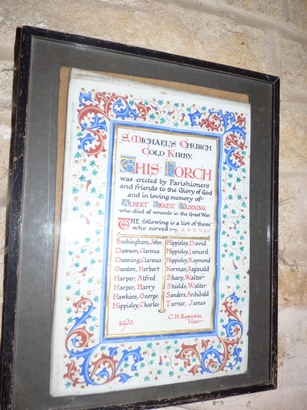 S. MICHAEL'S CHURCH
COLD KIRBY.
THIS PORCH
was erected by Parishioners
and friends to the Glory of God
and in loving memory of
ALBERT ERNEST DUNNING,
who died of wounds in the Great War
THE following is a list of those
who served :—
Buckingham, John Hippisley, David
Dawson, Clarence Hippisley, Leonard
Dunning, Clarence Hippisley, Raymond
Guston, Herbert Norman, Reginald
Harper, Alfred Sharp, Walter
Harper, Harry Shields, Walter
Hawkins, George Sanders, Archibald
Hippisley, Charles Turner, James
1920. C. H.
Vicar